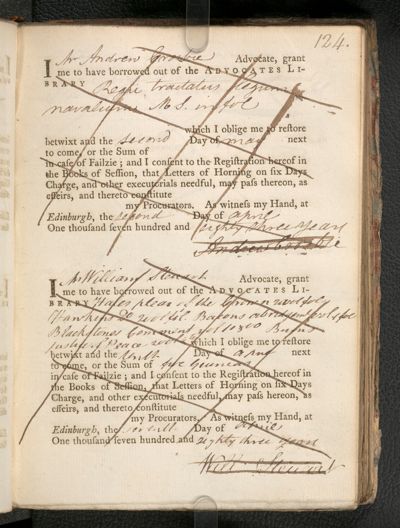 124.
I Mr Andrew Crosbie Advocate, grant
me to have borrowed out of the ADVOCATES LI-
BRARY Regii tractatus
navalium M S. in fol
which I oblige me to reſtore
betwixt and the second Day of may next
to come, or the Sum of
in caſe of Failzie; and I conſent to the Regiſtration hereof in
the Books of Seſſion, that Letters of Horning on ſix Days
Charge, and other executorials needful, may paſs thereon, as
effeirs, and thereto conſtitute
my Procurators. As witneſs my Hand, at
Edinburgh, the second Day of april
One thouſand ſeven hundred and eighty three years
Andrew Crosbie
I Mr William Stewart Advocate, grant
me to have borrowed out of the ADVOCATES LI-
BRARY Hales pleas of the Crown 2 vol fol
Hawkins Do 2 vol fol. Bacons abridgement 5 vol fol
Blackstones Comment Burns
justice of Peace which I oblige me to reſtore
betwixt and the tenth Day of april next
to come, or the Sum of five Guineas
in caſe of Failzie; and I conſent to the Regiſtration hereof in
the Books of Seſſion, that Letters of Horning on ſix Days
Charge, and other executorials needful, may paſs hereon, as
effeirs, and thereto conſtitute
my Procurators. As witneſs my Hand, at
Edinburgh, the seventh Day of april
One thouſand ſeven hundred and eighty three years
Will: Stewart